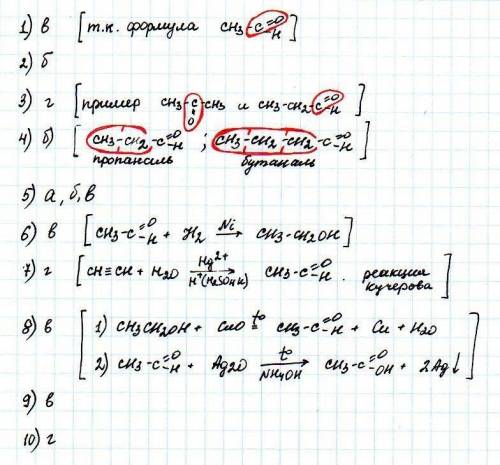 1) в [т.к. формула CH3-C=O-H]
2) б
3) г [пример CH3-C-CH3 и CH3-CH2-C=O-H]
O
4) б) [CH3-CH2-C=O-H ; CH3-CH2-CH2-C=O-H]
пропаналь бутаналь
5) а, б, в
6) в [CH3-C=O-H + H2 Ni→ CH3-CH2OH]
7) г [CH≡CH + H2O Hg2+→ H+(H2SO4 к) CH3-C=O-H . реакция Кучерова]
8) в [1) CH3CH2OH + CuO t°= CH3-C=O-H + Cu + H2O
2) CH3-C=O-H + Ag2O t°→ NH4OH CH3-C=O-OH + 2Ag↓]
9) в
10) г